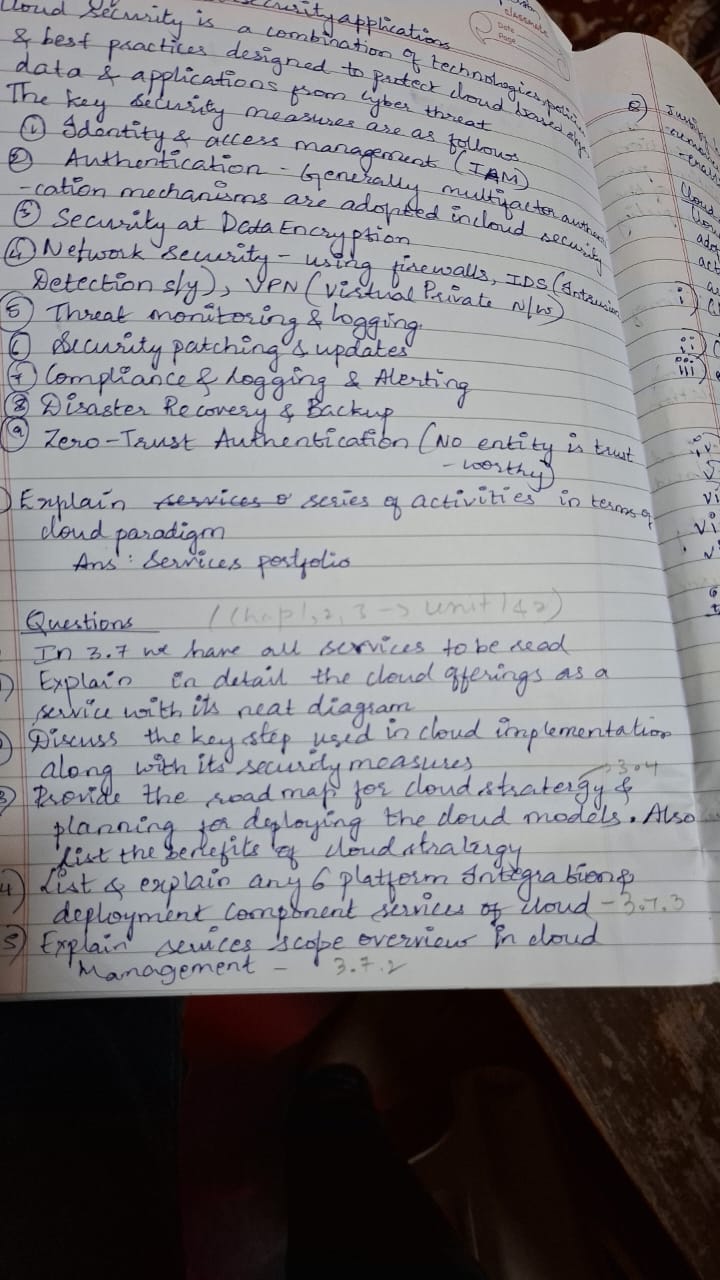 security applications
classmate
Date
Page
Cloud Security is a combination of technologies, policies
& best practices designed to protect cloud based
data & applications from cyber threat
The key security measures are as follows
① Identity & access management (IAM)
② Authentication - Generally multifactor authenti
-cation mechanisms are adopted in cloud security
③ Security at Data Encryption
④ Network Security - using firewalls, IDS (Intrusion
Detection s/y), VPN (Virtual Private N/w)
⑤ Threat monitoring & logging.
⑥ Security patching & updates
⑦ Compliance & Logging & Alerting
⑧ Disaster Recovery & Backup
⑨ Zero-Trust Authentication (No entity is trust
- worthy)
Explain services & series of activities in terms of
cloud paradigm
Ans : Services portfolio
Questions (Chap 1, 2, 3 → unit 1 & 2)
In 3.7 we have all services to be read
Explain in detail the cloud offerings as a
service with its neat diagram
Discuss the key step used in cloud implementation
along with its security measures
3.4
3) Provide the road map for cloud stratergy &
planning for deploying the cloud models. Also
list the benefits of cloud stratergy
4) List & explain any 6 platform Integration &
deployment component services of cloud - 3.7.3
5) Explain services scope overview in cloud
Management - 3.7.2
8)
i)
ii)
iii)
iv
v
vi